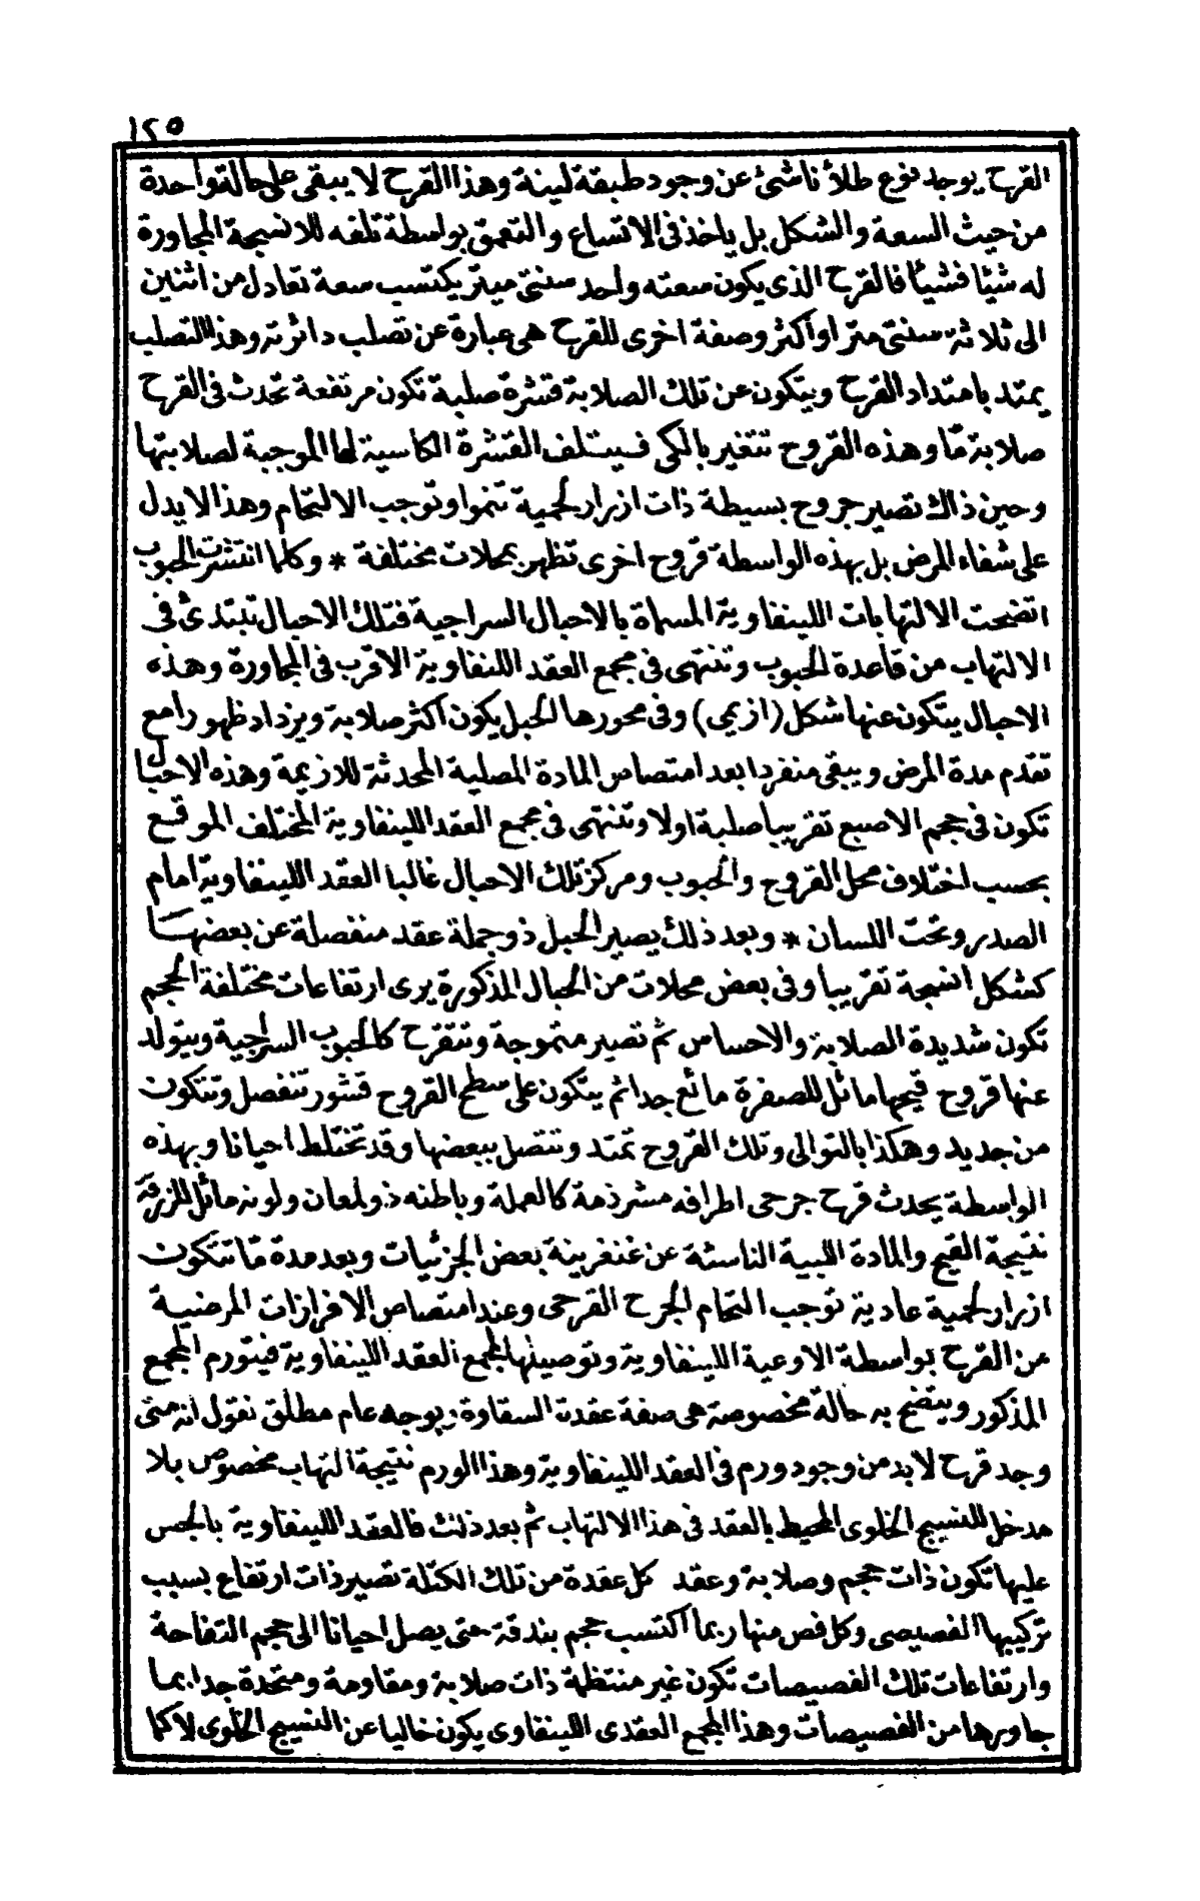 ١٢٥
القرح يوجد نوع طلاً ناشئ عن وجود طبقة لينة وهذا القرح لا يبقى على حالة واحدة
من حيث السعة والشكل بل ياخذ فى الاتساع والتعمق بواسطة تلفه للانسجة المجاورة
له شيئا فشيئا فالقرح الذى يكون سعته واحد سنتى ميتر يكتسب سعة تعادل من اثنين
الى ثلاثة سنتى متر او اكثر وصفة اخرى للقرح هى عبارة عن تصلب دائرته وهذا التصلب
يمتد بامتداد القرح ويتكون عن تلك الصلابة قشرة صلبة تكون مرتفعة تحدث فى القرح
صلابة مّا وهذه القروح تتغير بالكى فيتلف القشرة الكاسية لها الموجبة لصلابتها
وحين ذاك تصير جروح بسيطة ذات ازرار لحمية تنموا وتوجب الالتحام وهذا لا يدل
على شفاء المرض بل بهذه الواسطة قروح اخرى تظهر بمحلات مختلفة * وكلما انتشرت الحبوب
اتضحت الالتهابات اللينفاوية المسماة بالاحبال السراجية فتلك الاحبال تبتدئ فى
الالتهاب من قاعدة الحبوب وتنتهى فى مجمع العقد اللنفاوية الاقرب فى المجاورة وهذه
الاحبال يتكون عنها شكل (ازيمى) وفى محورها الحبل يكون اكثر صلابة ويزداد ظهورا مع
تقدم مدة المرض ويبقى منفردا بعد امتصاص المادة المصلية المحدثة للازيمة وهذه الاحبال
تكون فى حجم الاصبع تقريبا صلبة اولا وتنتهى فى مجمع العقد اللينفاوية المختلف الموقع
بحسب اختلاف محل القروح والحبوب ومركز تلك الاحبال غالبا العقد اللينفاوية امام
الصدر وتحت اللسان * وبعد ذلك يصير الحبل ذو جملة عقد منفصلة عن بعضها
كشكل انسجة تقريبا وفى بعض محلات من الحبال المذكورة يرى ارتفاعات مختلفة الحجم
تكون شديدة الصلابة والاحساس ثم تصير متموجة وتتقرح كالحبوب السراجية ويتولد
عنها قروح قيحها مائل للصفرة مائع جدا ثم يتكون على سطح القروح قشور تنفصل وتتكون
من جديد وهكذا بالتوالى وتلك القروح تمتد وتتصل ببعضها وقد تختلط احيانا وبهذه
الواسطة يحدث قرح جرحى اطرافه مشرذمة كالعملة وباطنه ذو لمعان ولونه مائل للزرقة
نتيجة القيح والمادة اللبية الناسئة عن غنغرينة بعض الجزئيات وبعد مدة مّا تتكون
ازرار لحمية عادية توجب التحام الجرح القرحى وعند امتصاص الافرازات المرضية
من القرح بواسطة الاوعية اللينفاوية وتوصيلها لمجمع العقد اللينفاوية فيتورم المجمع
المذكور ويتضح به حالة مخصوصة هى صفة عقدة السقاوة وبوجه عام مطلق نقول انه متى
وجد قرح لا بد من وجود ورم فى العقد اللينفاوية وهذا الورم نتيجة التهاب مخصوص بلا
مدخل للنسيج الخلوى المحيط بالعقد فى هذا الالتهاب ثم بعد ذلك فالعقد اللينفاوية بالجس
عليها تكون ذات حجم وصلابة وعقد كل عقدة من تلك الكتلة تصير ذات ارتفاع بسبب
تركيبها الفصيصى وكل فص منها ربما اكتسب حجم بندقة حتى يصل احيانا الى حجم التفاحة
وارتفاعات تلك الفصيصات تكون غير منتظمة ذات صلابة ومقاومة ومتحدة جدا بما
جاورها من الفصيصات وهذا المجمع العقدى اللينفاوى يكون خاليا عن النسيج الخلوى لا كما